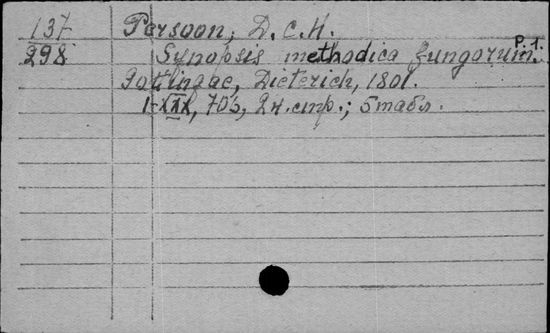 137 Persoon, D. C. H.
298 Synopsis methodica fungorum. P. 1.
Gottingae, Dieterich, 1801.
I-XXX, 703, 2 н. стр.; 5 табл.